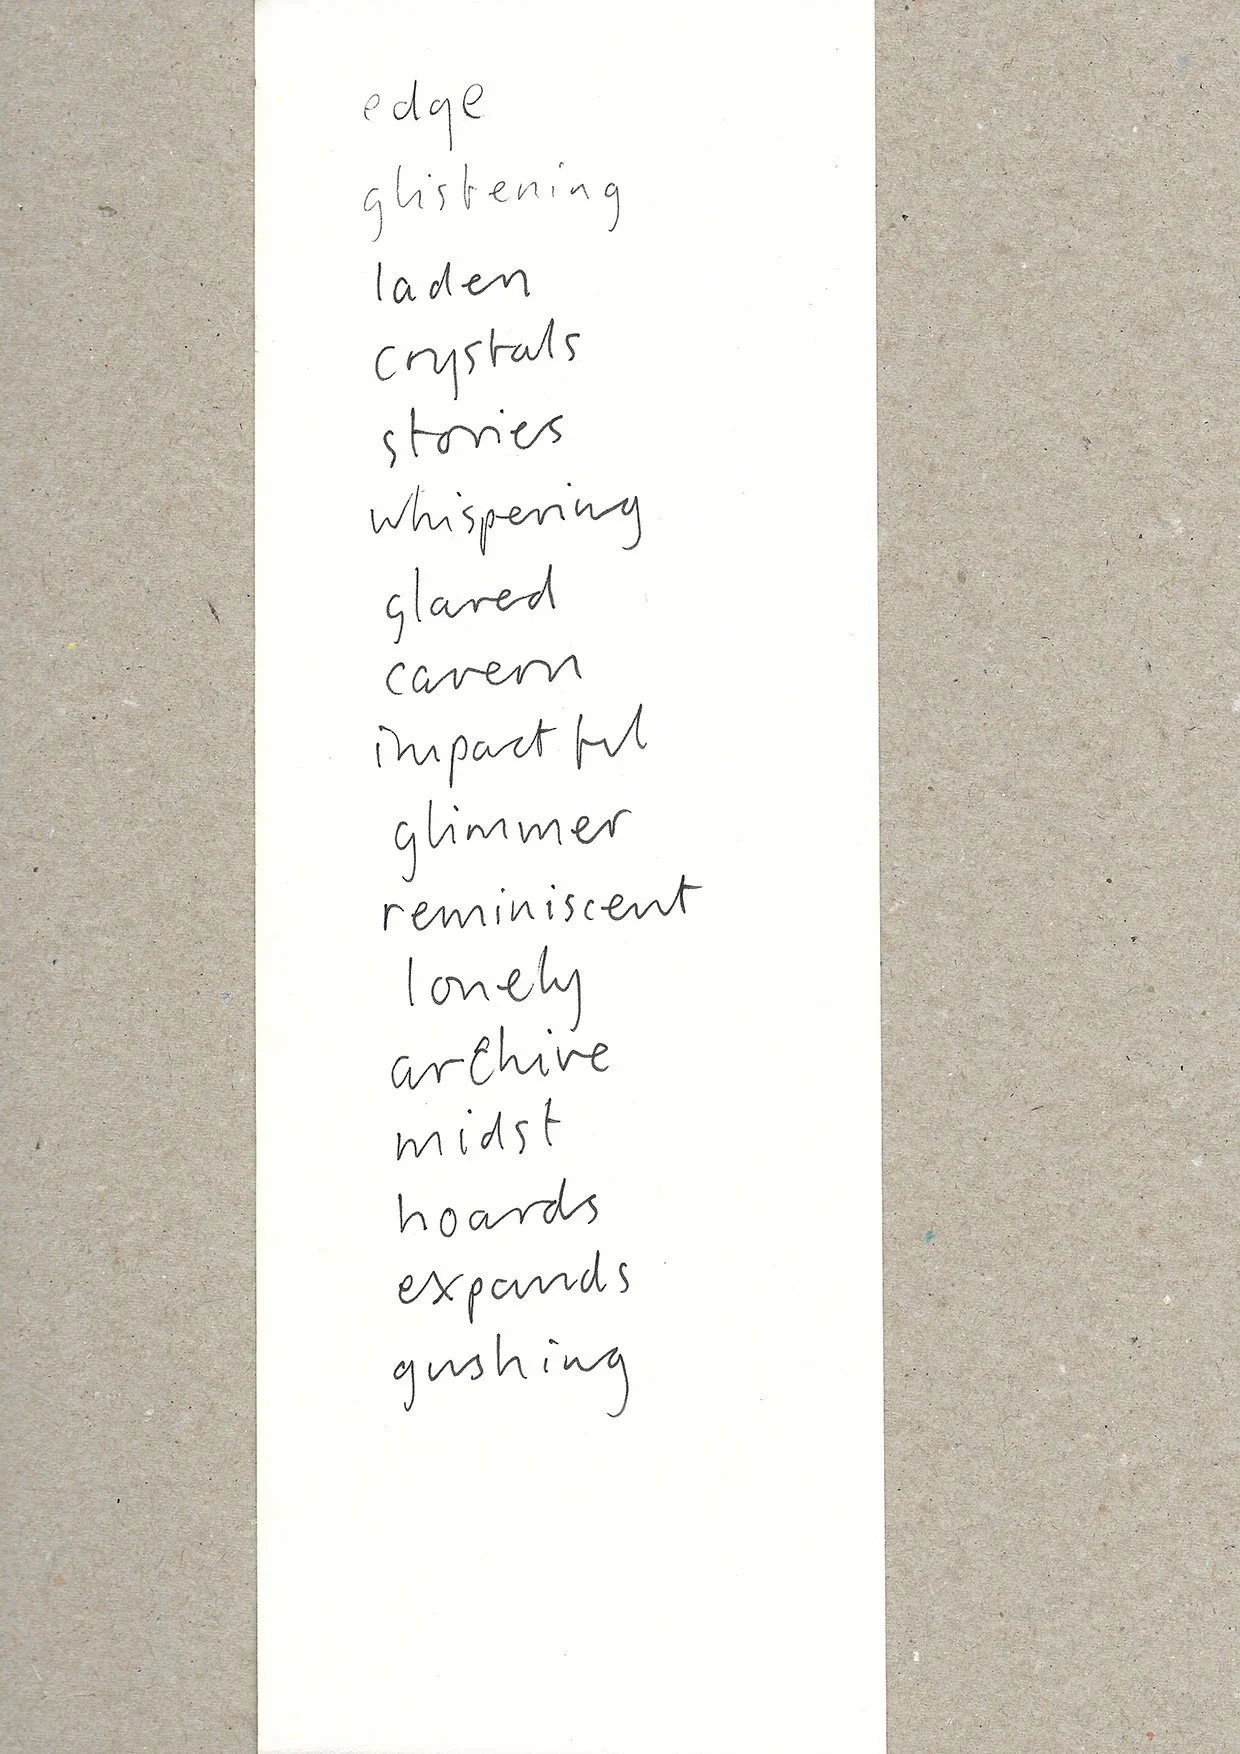 edge
glistening
laden
crystals
stories
whispering
glared
cavern
impactful
glimmer
reminiscent
lonely
archive
midst
hoards
expands
gushing